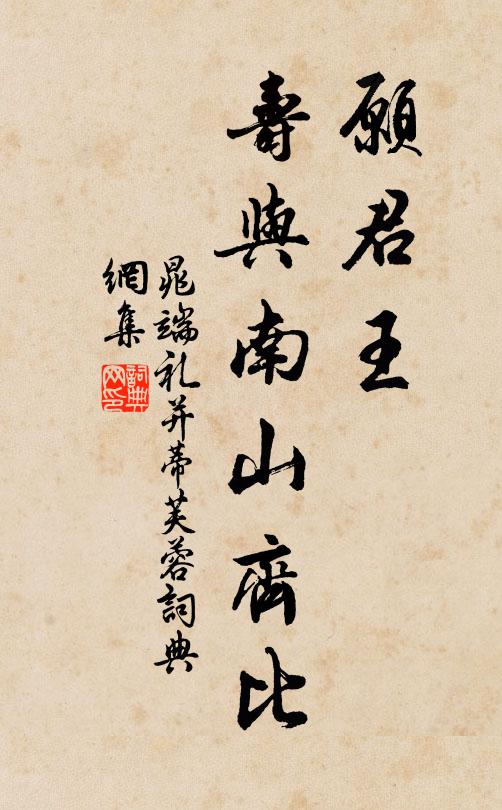 願君王
壽與南山齊比
晁端礼并蒂芙蓉詞典
網集
詞典
网印